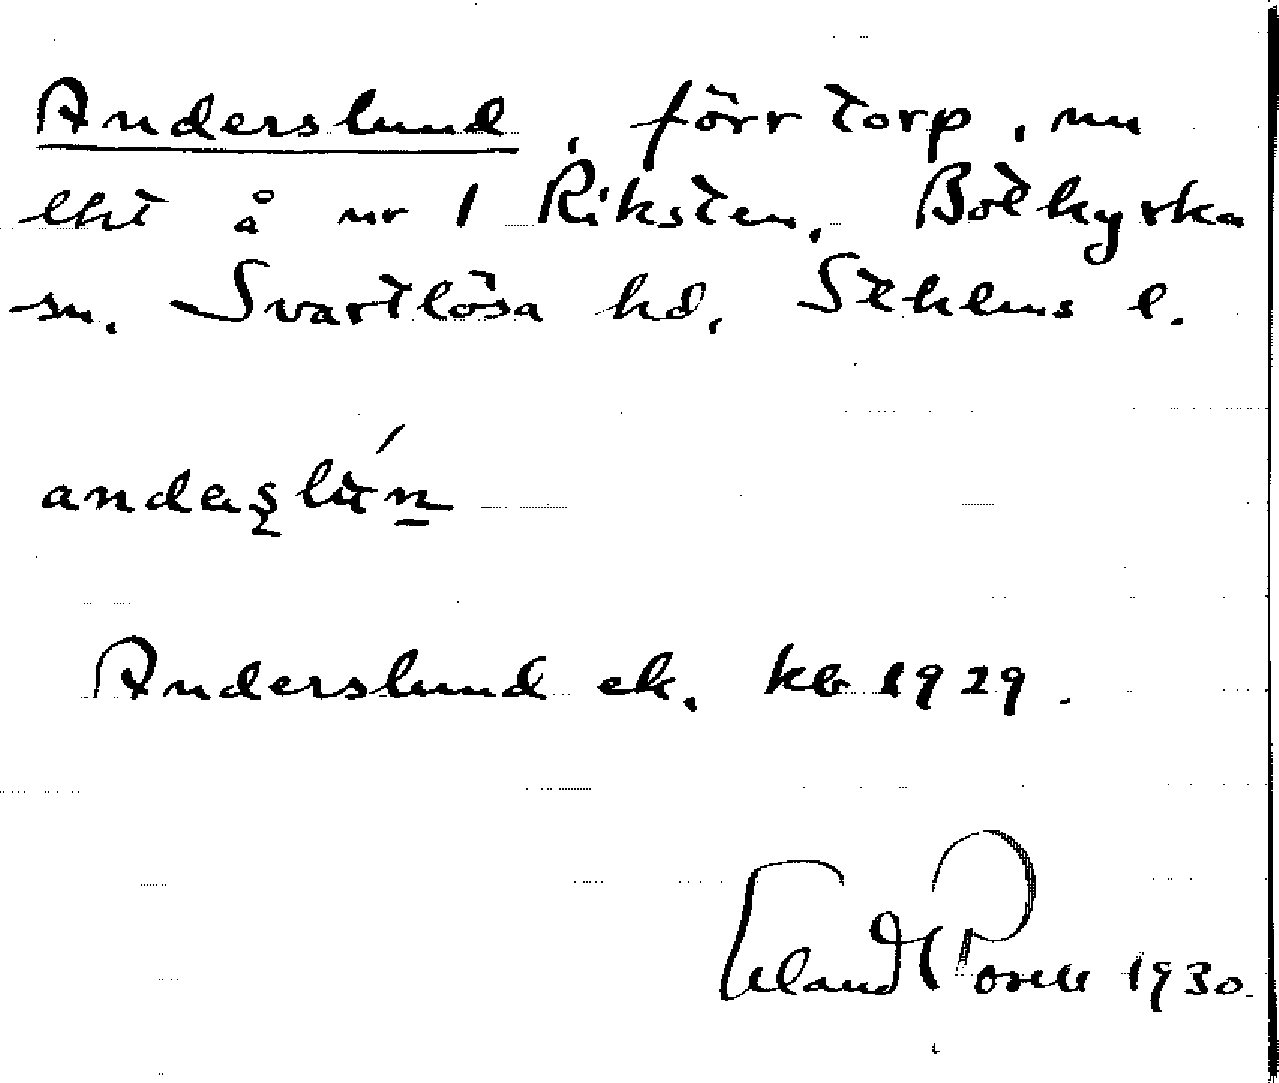 Anderslund, förr torp, nu
lht å nr 1 Riksten, Botkyrka
sn, Svartlösa hd, Sthlms l.
andas̨lún̲
Anderslund ek. kb 1929.
Erland Rosell 1930.